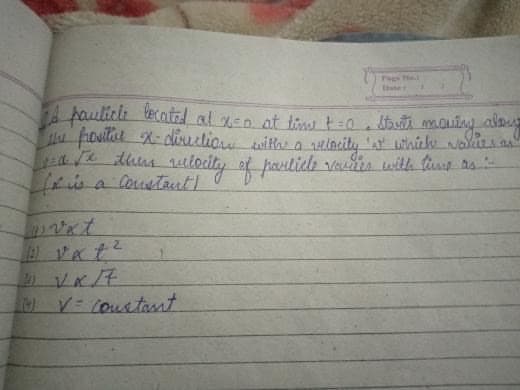 Page No.:
Date: : :
A particle located at x=0 at time t=0, starts moving along
the positive x-direction with a velocity 'v' which varies as
v=α√x then velocity of particle varies with time as :-
(α is a constant)
(1) v∝t
(2) v∝t²
(3) v∝√t
(4) v = constant